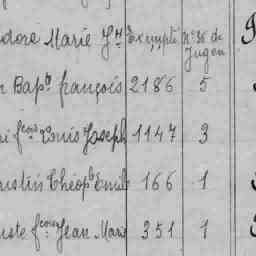 dore Marie Jh Exempté N° 36 de
Jugen
n Bapt. françois 2186 5
ri fçois Louis Joseph 1147 3
ustin Théop. Emile 166 1
uste fçois Jean Marie 351 1